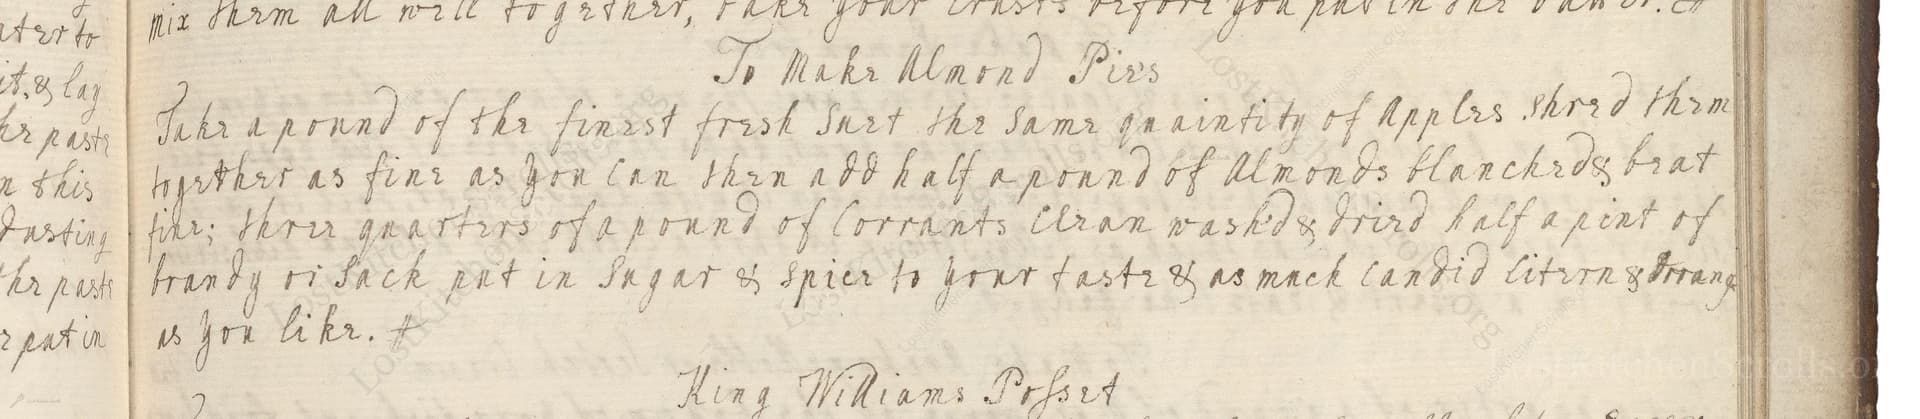 ater to
it, & lay
he paste
n this
dusting
the paste
put in
mix them all well together, bake your Crusts before you put in the batter.
To Make Almond Pies
Take a pound of the finest fresh Suet the Same quaintity of Apples Shred them
together as fine as you Can then add half a pound of Almonds blanched & beat
fine; three quarters of a pound of Corrants Clean washd & dried half a pint of
brandy or Sack put in Sugar & Spice to your taste & as much Candid Citern & Orrange
as you like.
King Williams Posset